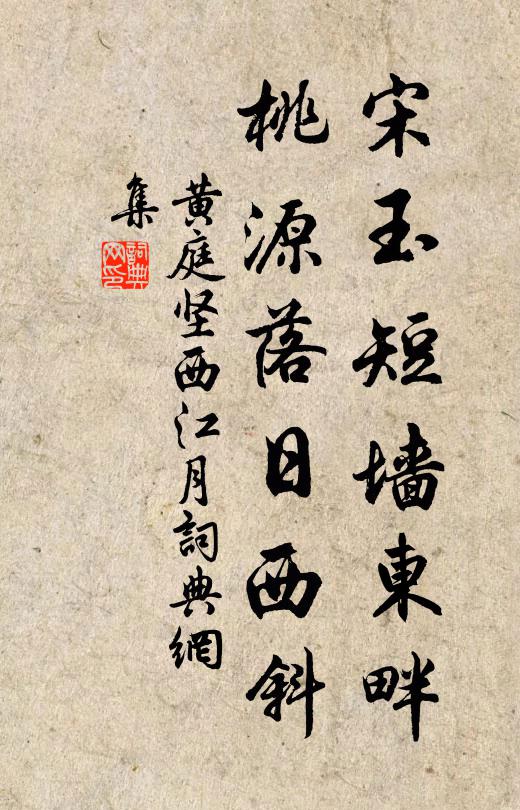 宋玉短墙東畔
桃源落日西斜
黄庭坚西江月詞典網
集
詞典
网印